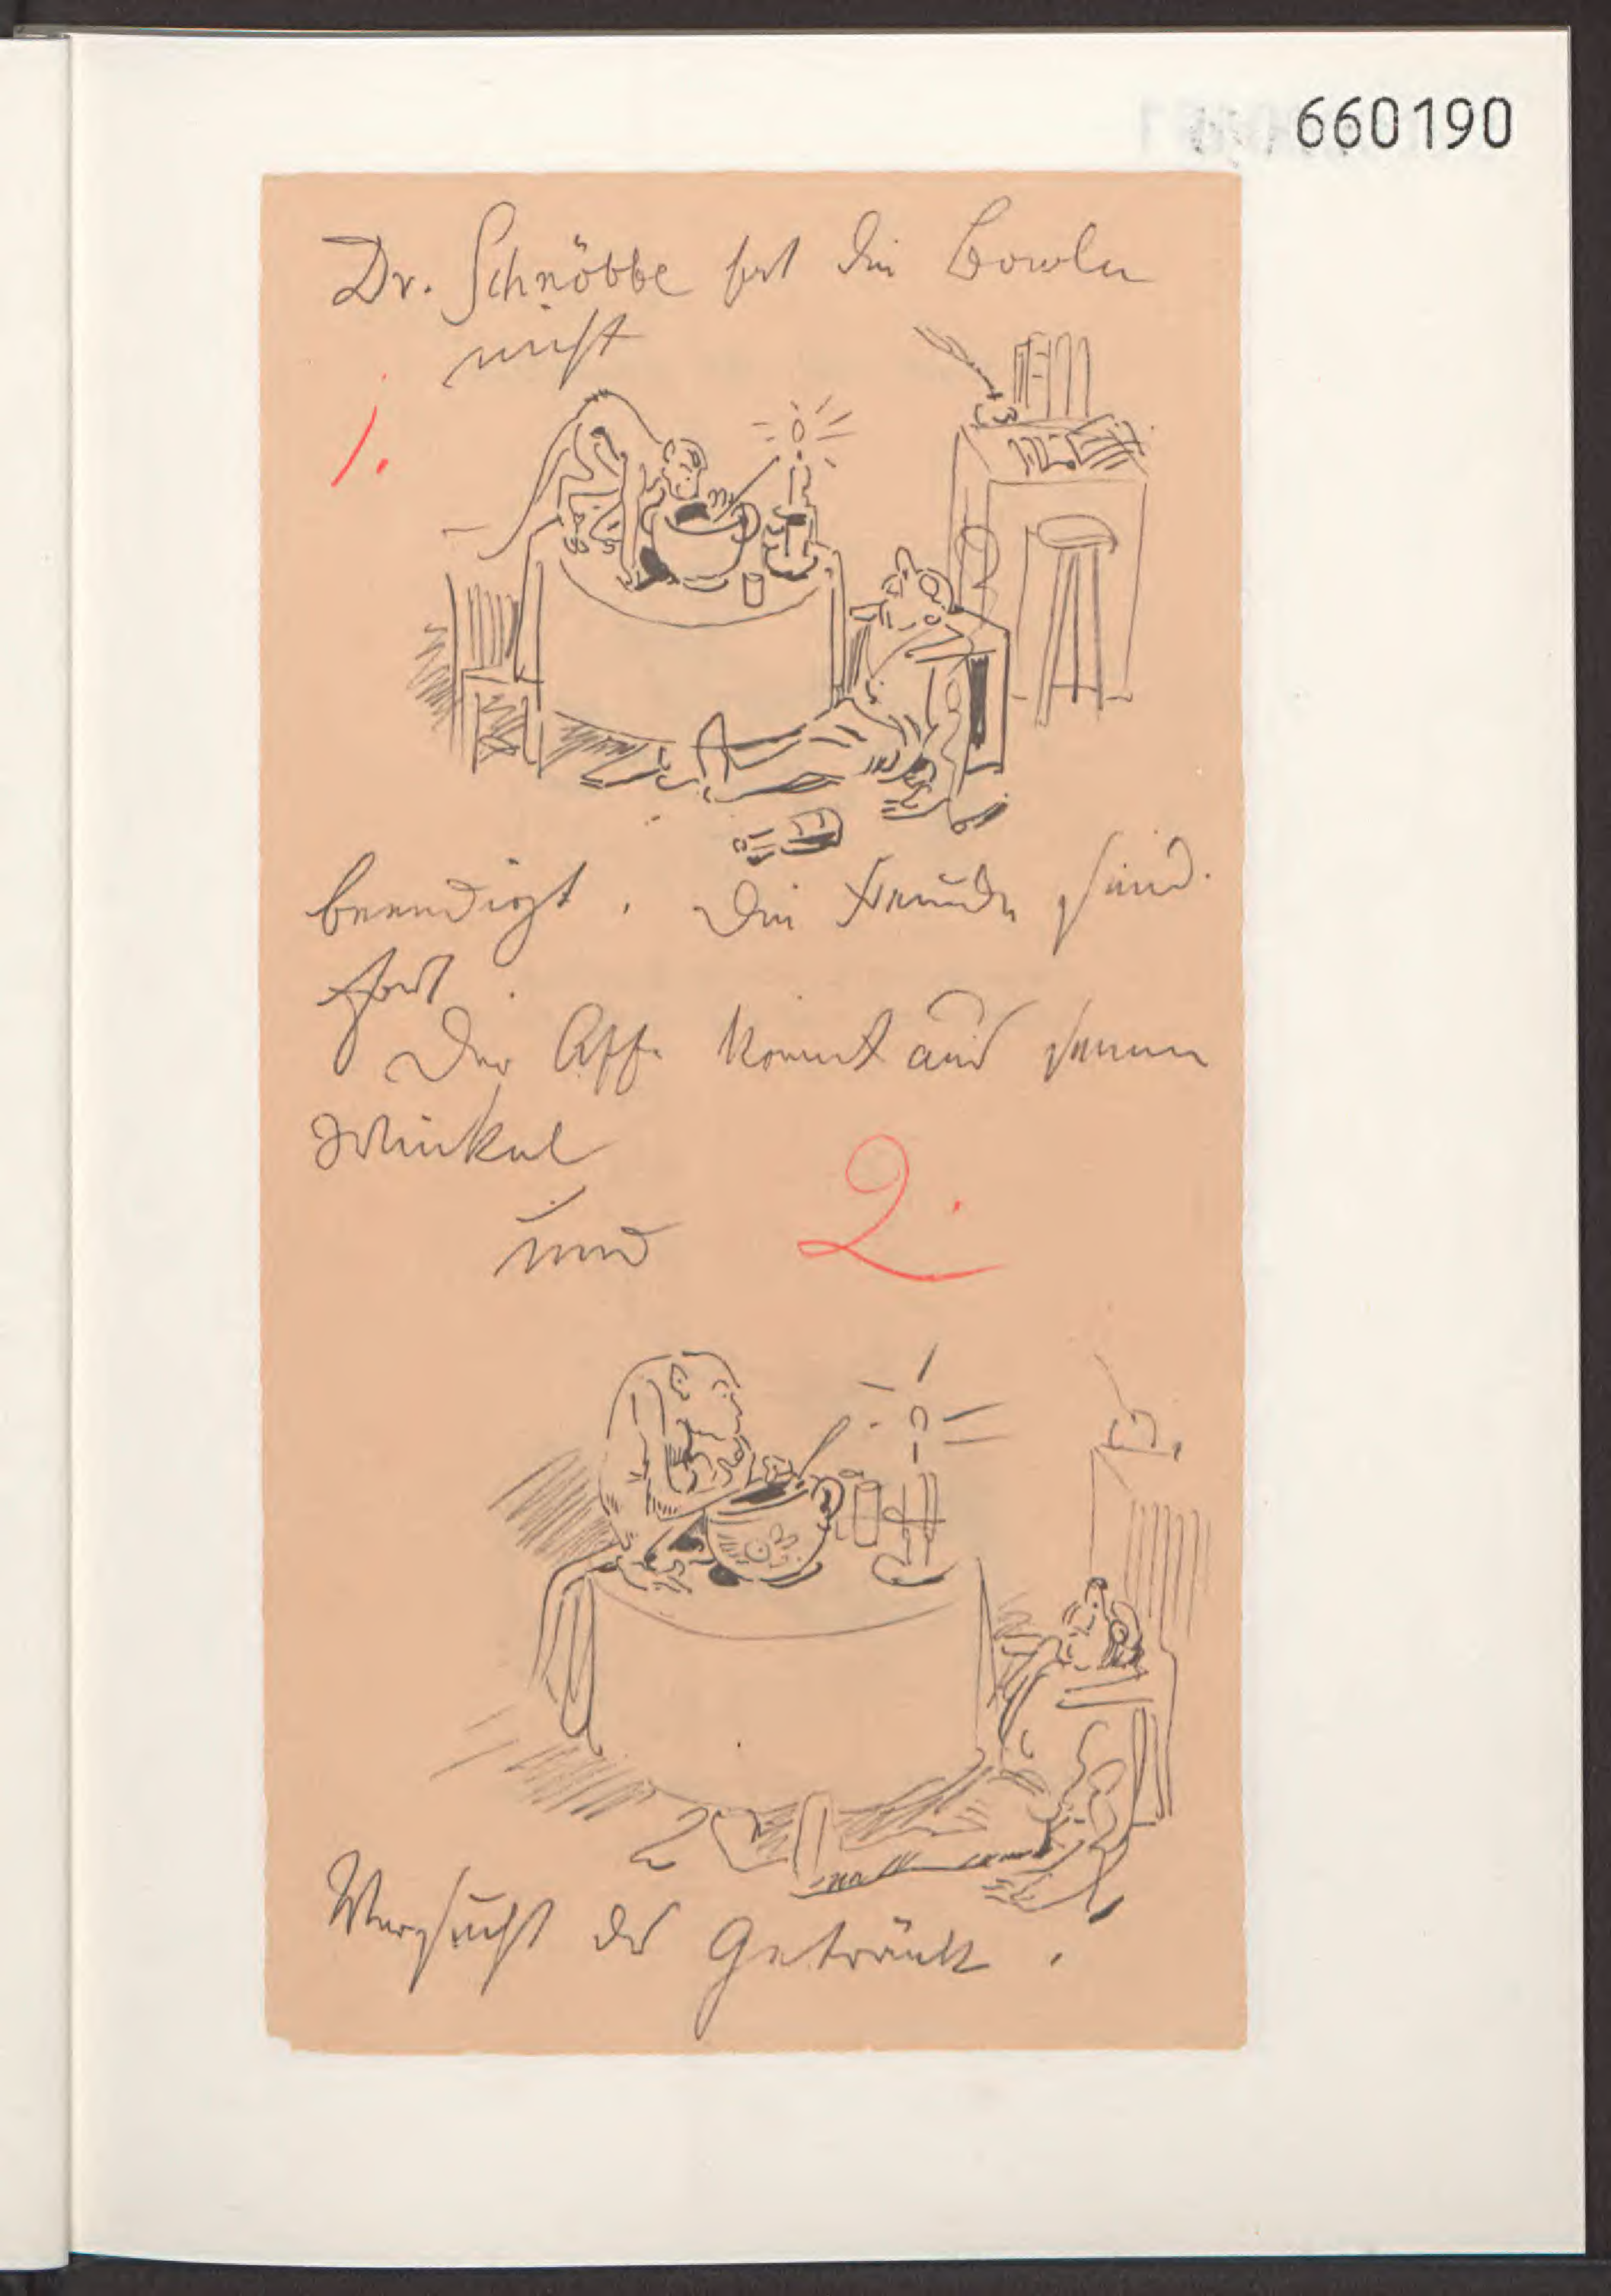 660190
Dr. Schnöbbe hat die Bowle
nicht
1.
beendigt. Die Freunde sind
fort.
Der Affe kommt aus seinem
Winkel
und 2.
Versucht das Getränk.